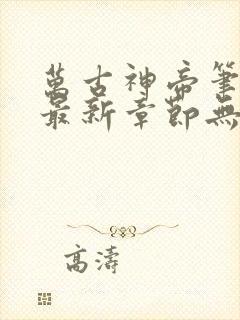 萬古神帝筆
最新章節無
高濤